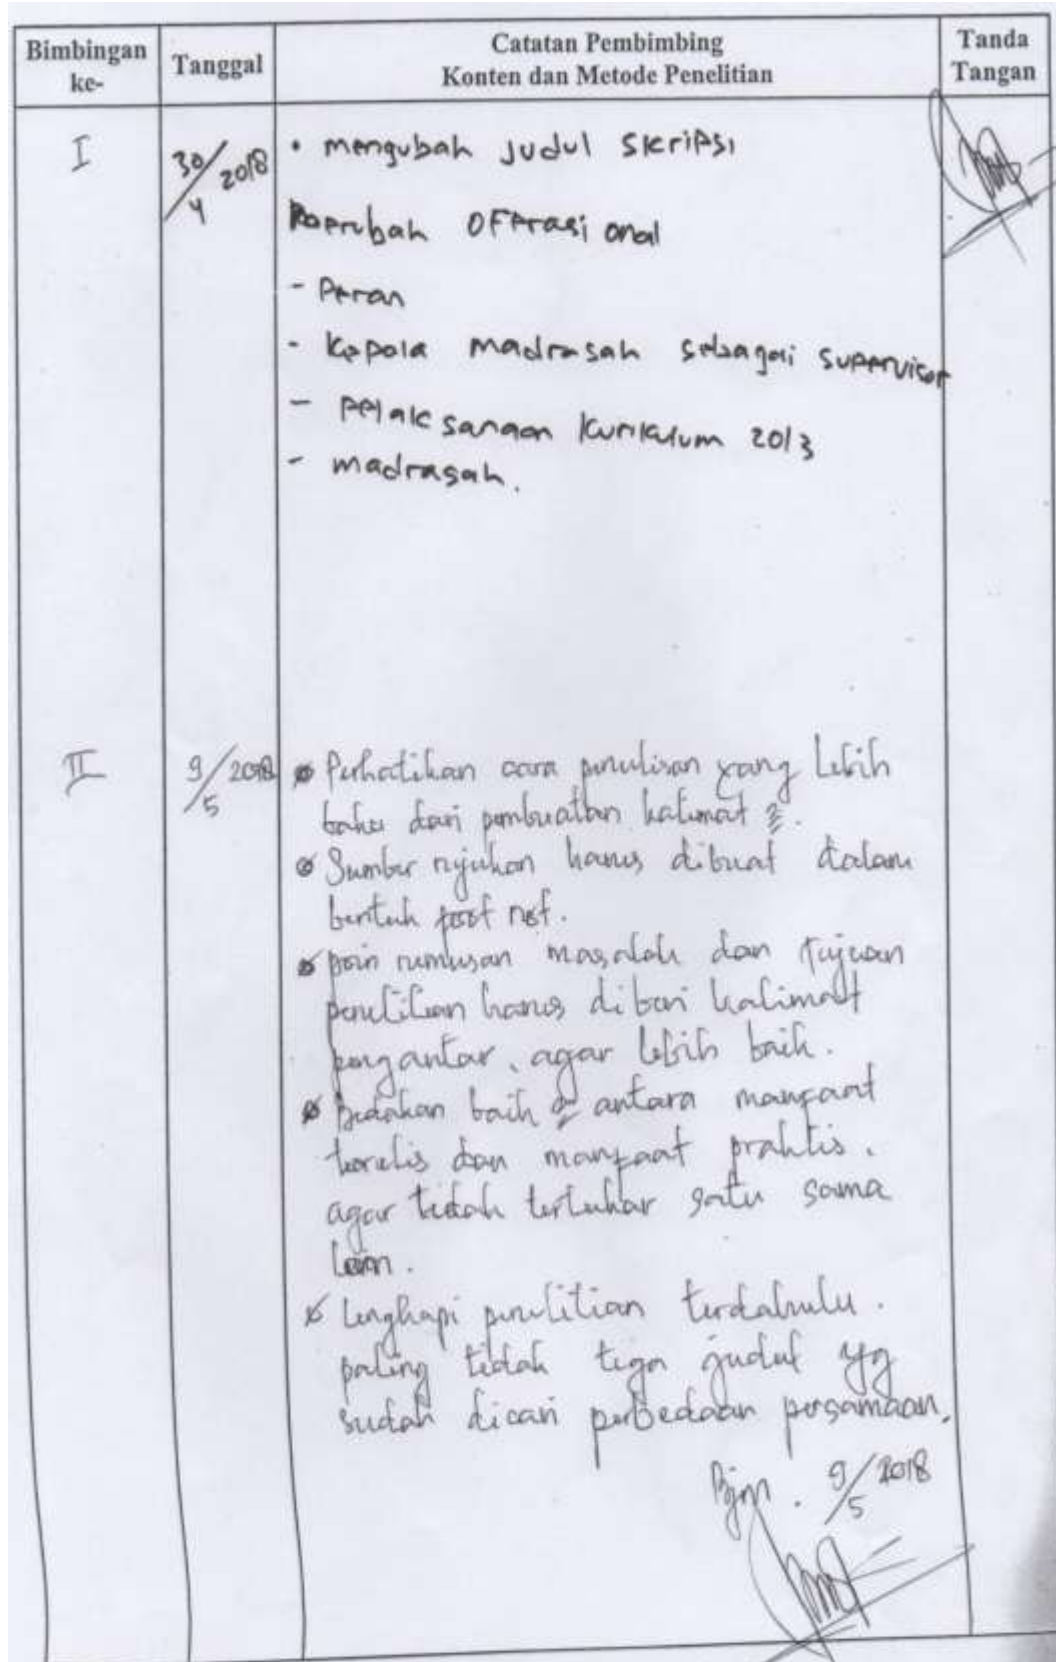 Bimbingan ke-
Tanggal
Catatan Pembimbing
Konten dan Metode Penelitian
Tanda Tangan
I
30/4 2018
• mengubah judul skripsi
operasional
- Peran
- Kepala madrasah sebagai supervisor
- pelaksanaan kurikulum 2013
- madrasah.
II
9/5 2018
Perhatikan cara penulisan yang lebih
baku dari pembuatan kalimat
Sumber rujukan harus dibuat dalam
bentuk foot not.
poin rumusan masalah dan tujuan
penelitian harus diberi kalimat
pengantar, agar lebih baik.
Bedakan baik2 antara manfaat
teoretis dan manfaat praktis.
agar tidak tertukar satu sama
lain.
Lengkapi penelitian terdahulu.
paling tidak tiga judul yg
sudah dicari perbedaan persamaan.
Bjm. 9/5 2018